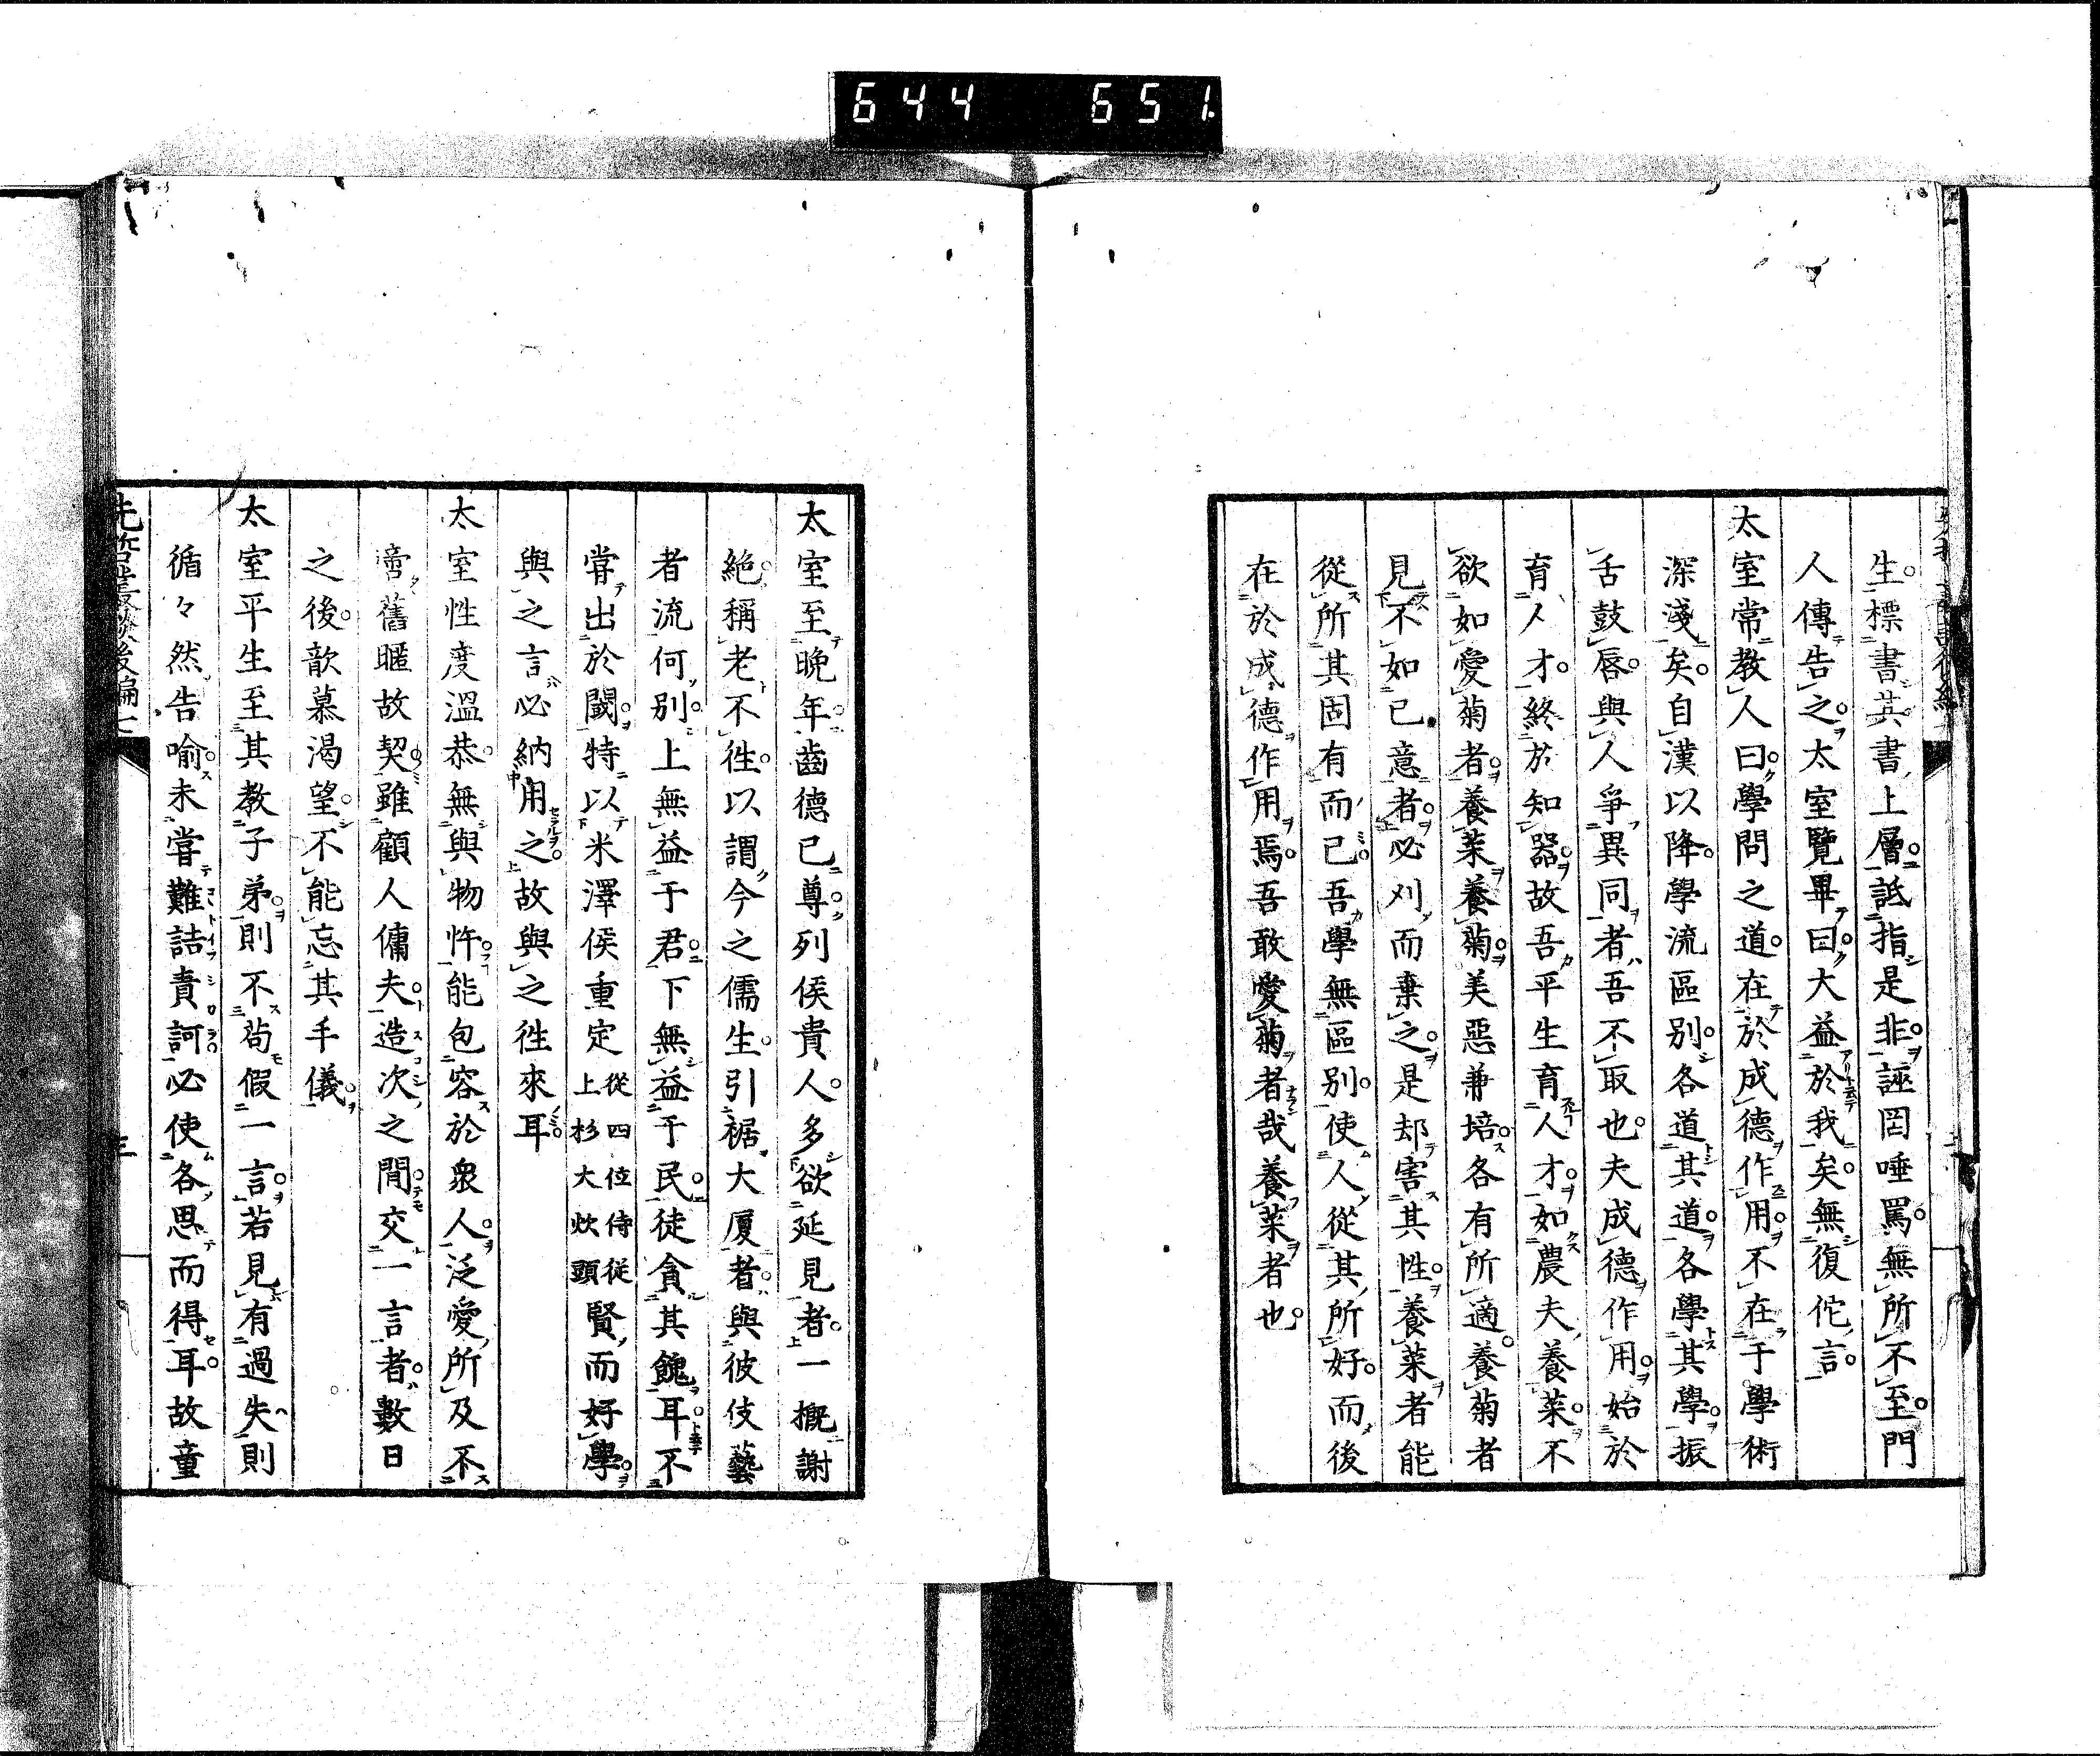 644 651
生標書其書上層詆指是非誣罔唾罵無所不至門
人傳告之太室覽畢曰大益於我矣無復佗言
太室常教人曰學問之道在於成德作用不在于學術
深淺矣自漢以降學流區別各道其道各學其學振
舌鼓唇與人爭異同者吾不取也夫成德作用始於
育人才終於知器故吾平生育人才如農夫養菜不
欲如愛菊者養菜養菊美惡兼培各有所適養菊者
見不如已意者必刈而棄之是却害其性養菜者能
從所其固有而已吾學無區別使人從其所好而後
在於成德作用焉吾敢愛菊者哉養菜者也
太室至晩年齒德已尊列侯貴人多欲延見者一概謝
絶稱老不徃以謂今之儒生引裾大厦者與彼伎藝
者流何別上無益于君下無益于民徒貪其餽耳不
嘗出於閾特以米澤侯重定從四位侍從上杉大炊頭賢而好學
與之言必納用之故與之徃來耳
太室性度溫恭無與物忤能包容於衆人泛愛所及不
啻舊暱故契雖顧人傭夫造次之間交一言者數日
之後歆慕渴望不能忘其手儀
太室平生至其教子弟則不苟假一言若見有過失則
循々然告喻未嘗難詰責訶必使各思而得耳故童
先哲叢談後編七
三